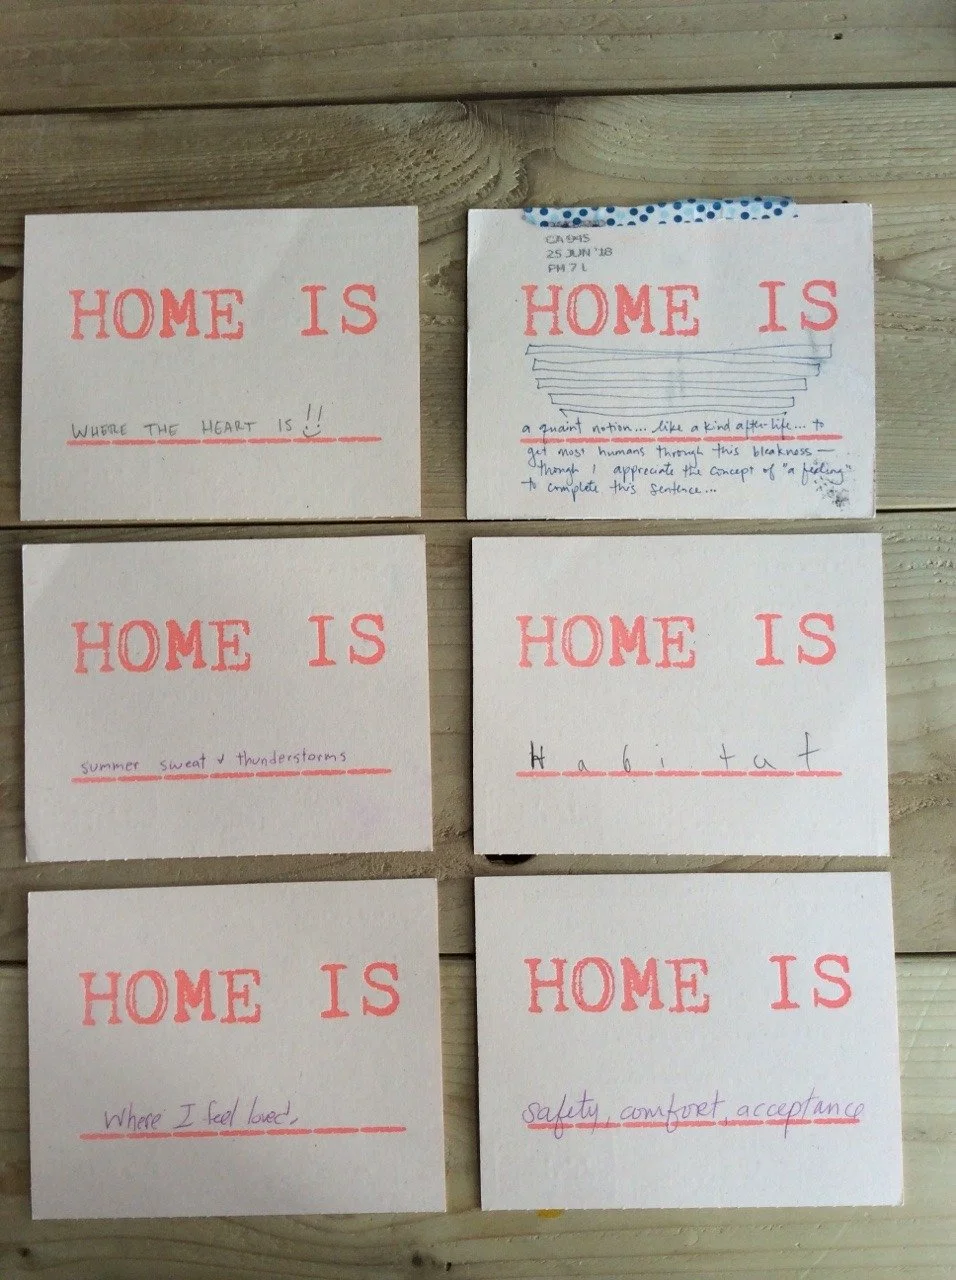 HOME IS
WHERE THE HEART IS !!
CA 945
25 JUN '18
PM 7 L
HOME IS
a quaint notion... like a kind after-life... to
get most humans through this bleakness —
though I appreciate the concept of "a feeling"
to complete this sentence...
HOME IS
summer sweat & thunderstorms
HOME IS
Habitat
HOME IS
Where I feel loved.
HOME IS
safety, comfort, acceptance